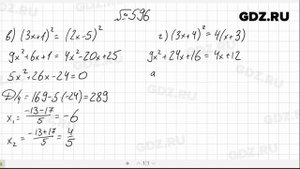 №596
GDZ.RU
в) (3x+1)² = (2x-5)²
9x²+6x+1 = 4x²-20x+25
5x²+26x-24=0
D/4 = 169-5·(-24)=289
x₁ = (-13-17)/5 = -6
x₂ = (-13+17)/5 = 4/5
г) (3x+4)² = 4(x+3)
9x²+24x+16 = 4x+12
GDZ.RU